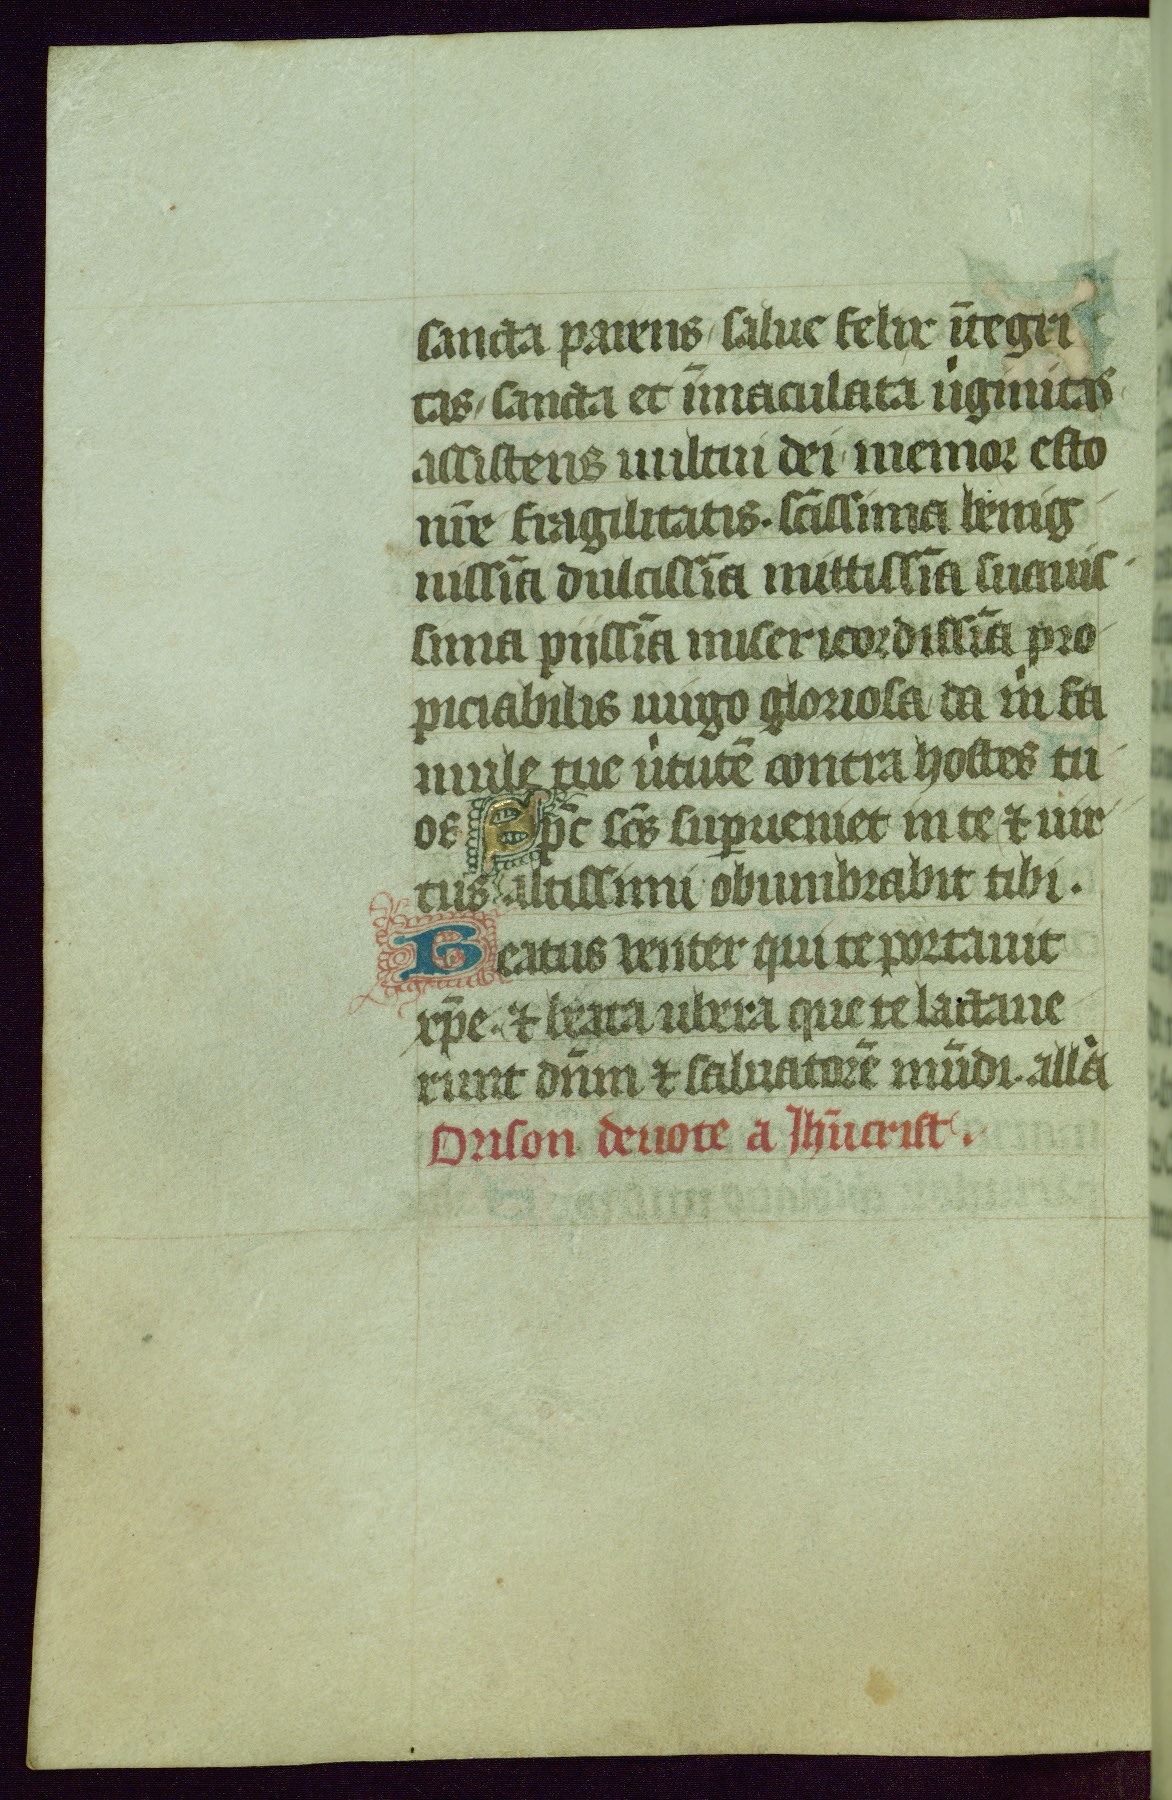 sancta parens / salue felix ītegri
tas / sancta et īmaculata uiginitas
assistens uultui dei / memor esto
nr̄e fragilitatis. sc̄issima benig
nissīa dulcissīa mittissīa suauis
sima pijssīa misericordissīa pro
piciabilis uirgo gloriosa / da m̍ fa
mule tue u̍tutē contra hostes tu
os Sp̄c sc̄s superueniet in te ⁊ uir
tus altissimi obumbrabit tibi.
Beatus uenter qui te portauit
xp̄e. ⁊ beata ubera que te lactaue
runt dn̄m ⁊ saluatorē mūdi. all̍a
Orison deuote a Jhūcrist.